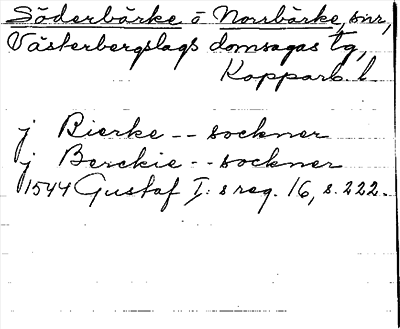 Söderbärke o Norrbärke, snr,
Västerbergslags domsagas tg,
Kopparb. l.
j Bierke -- sockner
j Berckie -- sockner
1544 Gustaf I:s reg. 16, s. 222.